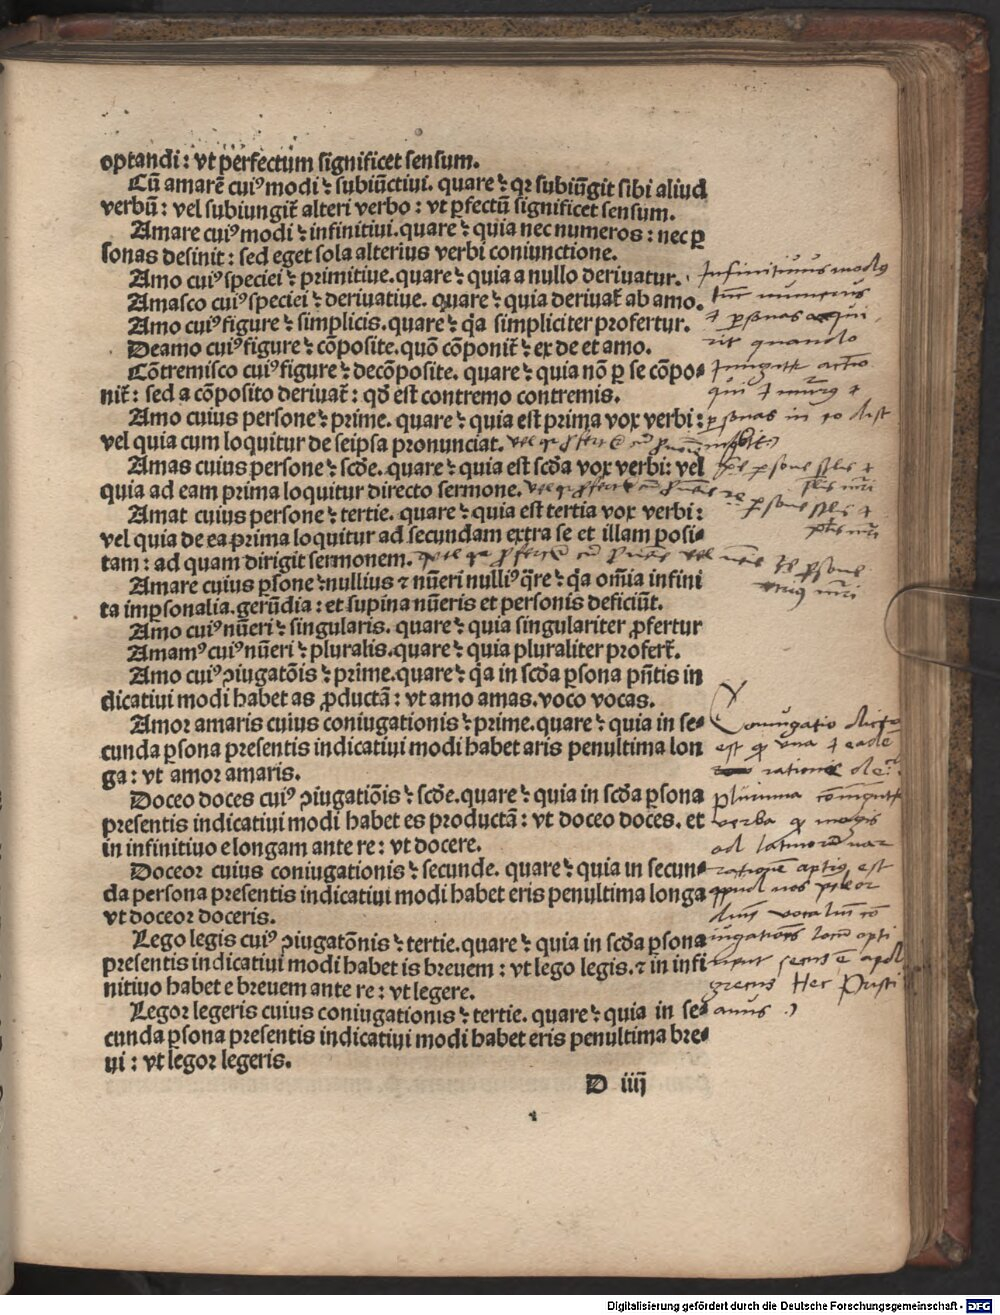 optandi: vt perfectum significet sensum.
Cū amarē cuiꝰ modi ē subiūctiui. quare ē qꝛ subiūgit sibi aliud
verbū: vel subiungit̄ alteri verbo: vt ꝑfectū significet sensum.
Amare cuiꝰ modi ē infinitiui. quare ē quia nec numeros: nec ꝑ
sonas desinit: sed eget sola alterius verbi coniunctione.
Amo cuiꝰ speciei ē primitiue. quare ē quia a nullo deriuatur.
Amasco cuiꝰ speciei ē deriuatiue. quare ē quia deriuat̄ ab amo.
Amo cuiꝰ figure ē simplicis. quare ē q̄a simpliciter profertur.
Deamo cuiꝰ figure ē cōposite. quō cōponit̄ ē ex de et amo.
Cōtremisco cuiꝰ figure ē decōposite. quare ē quia nō ꝑ se cōpo⸗
nit̄: sed a cōposito deriuat̄: qđ est contremo contremis.
Amo cuius persone ē prime. quare ē quia est prima vox verbi:
vel quia cum loquitur de seipsa pronunciat.
Amas cuius persone ē scđe. quare ē quia est scđa vox verbi: vel
quia ad eam prima loquitur directo sermone.
Amat cuius persone ē tertie. quare ē quia est tertia vox verbi:
vel quia de ea prima loquitur ad secundam extra se et illam posi⸗
tam: ad quam dirigit sermonem.
Amare cuius ꝑsone ē nullius ⁊ nūeri nulliꝰ q̄re ē q̄a om̄ia infini
ta imꝑsonalia. gerūdia: et supina nūeris et personis deficiūt.
Amo cuiꝰ nūeri ē singularis. quare ē quia singulariter ꝓfertur
Amamꝰ cuiꝰ nūeri ē pluralis. quare ē quia pluraliter profert̄.
Amo cuiꝰ ꝯiugatōis ē prime. quare ē q̄a in scđa ꝑsona pn̄tis in
dicatiui modi habet as ꝓductā: vt amo amas. voco vocas.
Amor amaris cuius coniugationis ē prime. quare ē quia in se⸗
cunda ꝑsona presentis indicatiui modi habet aris penultima lon
ga: vt amor amaris.
Doceo doces cuiꝰ ꝯiugatiōis ē scđe. quare ē quia in scđa ꝑsona
presentis indicatiui modi habet es productā: vt doceo doces. et
in infinitiuo e longam ante re: vt docere.
Doceor cuius coniugationis ē secunde. quare ē quia in secun⸗
da persona presentis indicatiui modi habet eris penultima longa
vt doceor doceris.
Lego legis cuiꝰ ꝯiugatōnis ē tertie. quare ē quia in scđa ꝑsona
presentis indicatiui modi habet is breuem: vt lego legis. ⁊ in infi
nitiuo habet e breuem ante re: vt legere.
Legor legeris cuius coniugationis ē tertie. quare ē quia in se⸗
cunda ꝑsona presentis indicatiui modi habet eris penultima bre⸗
ui: vt legor legeris.
D iiij
Infinitiuus modus
numerus
quando
Coniugatio dicta
est
verba
est
Digitalisierung gefördert durch die Deutsche Forschungsgemeinschaft - DFG